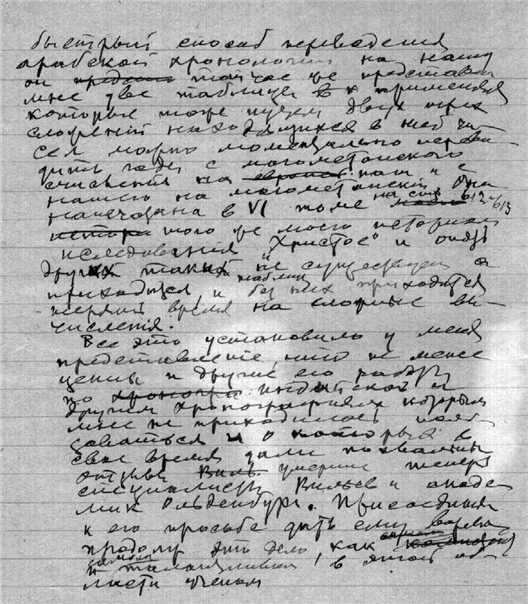 быстрый способ переведения
арабской хронологии на нашу
он тотчас же представил
мне две таблицы в применяя
которые тоже путем двух трех
сложений находящихся в ней чи
сел можно моментально перево
дить годы с могометанского
счисления на наш и с
нашего на могометанский. Она
напечатана в VI томе на стр 612-613
того же моего историч
исследования "Христос" и
других таких таблиц не существует а
приходится и без них приходится
терять время на сложные вы-
числения.
Все это установило у меня
представление, что не менее
ценны и другие его работы
по индийской и
другим хронографиям которыми
мне не приходилось поль
зоваться и о которых в
свое время дали похвальные
отзывы умершие теперь
специалисты Вильев и акаде
мик Ольденбург. Присоединяя
к его просьбе дать ему
это дело, как
и талантливым в этой об
ласти ученым